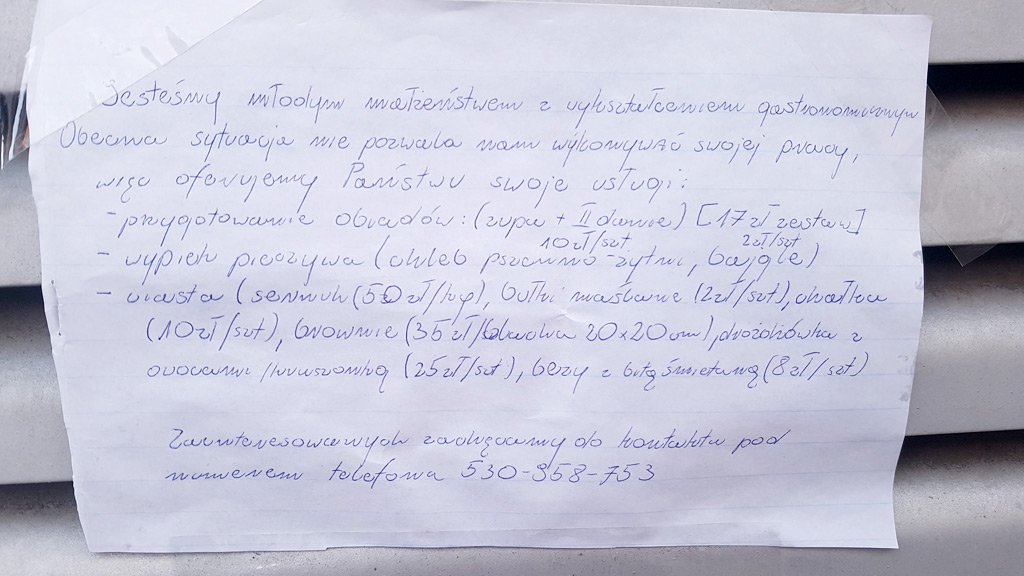 Jesteśmy młodym małżeństwem z wykształceniem gastronomicznym
Obecna sytuacja nie pozwala nam wykonywać swojej pracy,
więc oferujemy Państwu swoje usługi:
- przygotowanie obiadów: (zupa + II danie) [17 zł zestaw]
10 zł/szt 2zł/szt
- wypiek pieczywa (chleb pszenno-żytni, bajgle)
- ciasta (sernik (50 zł/kg), bułki maślane (2zł/szt), chałka
(10 zł/szt), brownie (35 zł/blaszka 20x20cm), drożdżówka z
owocami /kruszonką (25zł/szt), bezy z bitą śmietaną (8 zł/szt)
Zainteresowanych zachęcamy do kontaktu pod
numerem telefonu 530-858-753